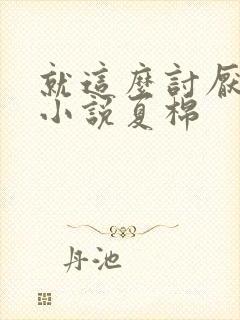 就這麼討厭
小說夏棉
丹池